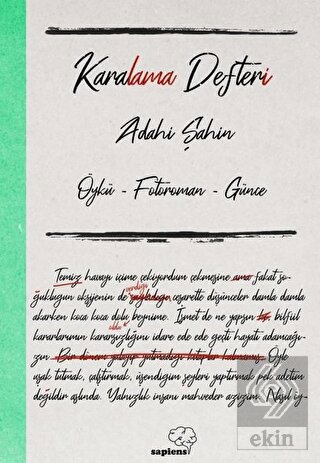 Karalama Defteri
Adahi Şahin
Öykü - Fotoroman - Günce
Temiz havayı içime çekiyordum çekmesine ama fakat so-
verdiği
ğukluğun oksijenin de sağladığı cesaretle düşünceler damla damla
akarken koca koca dolu beynime. İsmet de ne yapsın bilfiil
oldu
kararlarımın kararsızlığını idare ede ede geçti hayatı adamcağı-
zın. Bir dönem yalayıp yutmadığı kitaplar kalmamış. Öyle
uşak tutmak, çalıştırmak, üşendiğim şeyleri yaptırmak pek adetim
değildir aslında. Yalnızlık insanı mahveder azizim. Nasıl iy-
sapiens
ekin